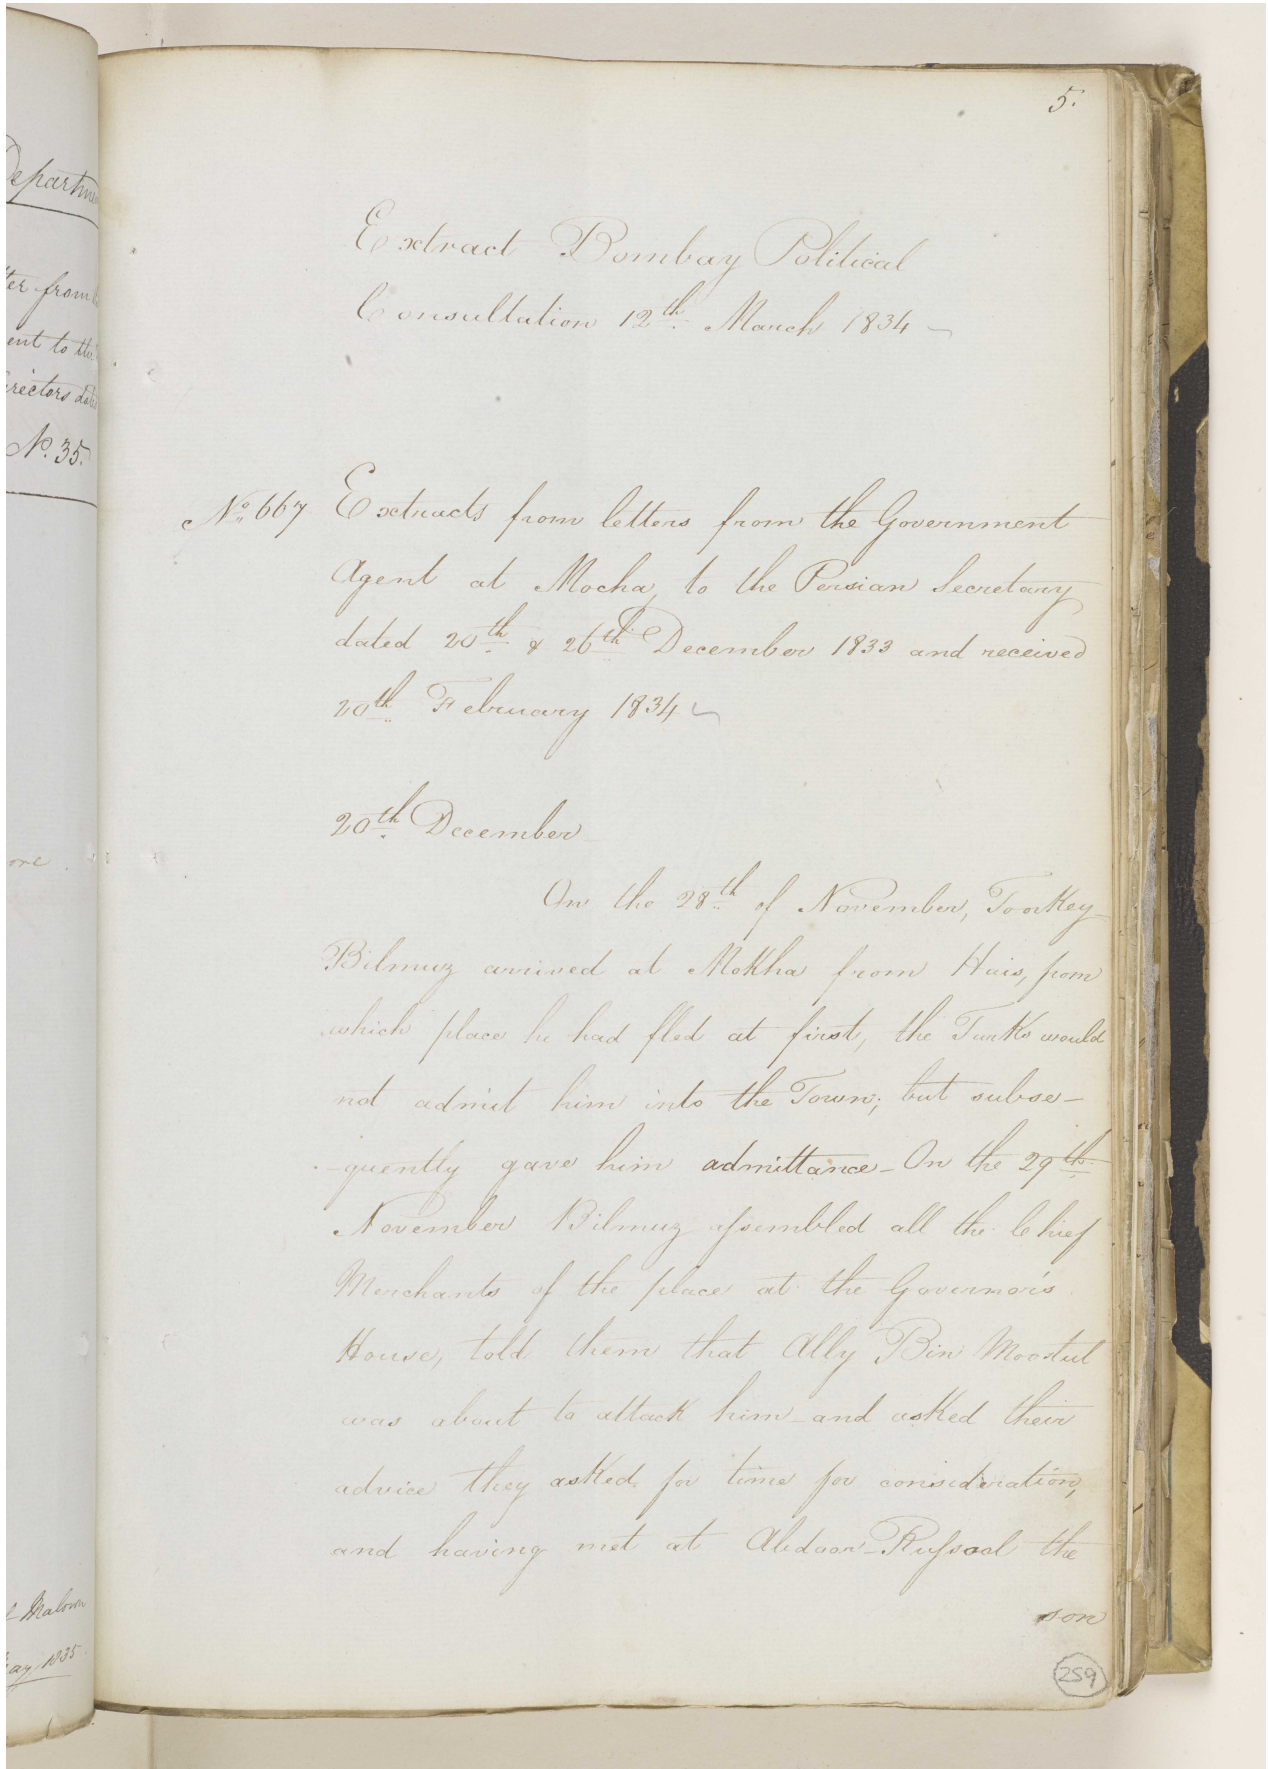 Departme
ter from
ent to the
irectors dat
No. 35.
ore
Malcom
ay 1835
5.
Extract Bombay Political
Consultation 12th March 1834
No. 667 Extracts from letters from the Government
Agent at Mocha, to the Persian Secretary
dated 20th & 26th December 1833 and received
20th February 1834
20th December
On the 28th of November, Toorkey
Bilmuz arrived at Mokha from Hais, from
which place he had fled at first, the Turks would
not admit him into the Town; but subse-
-quently gave him admittance - On the 29th
November Bilmuz assembled all the Chief
Merchants of the place at the Governor's
House, told them that Ally Bin Moostul
was about to attack him and asked their
advice they asked for time for consideration,
and having met at Abdoor-Russool the
son
259